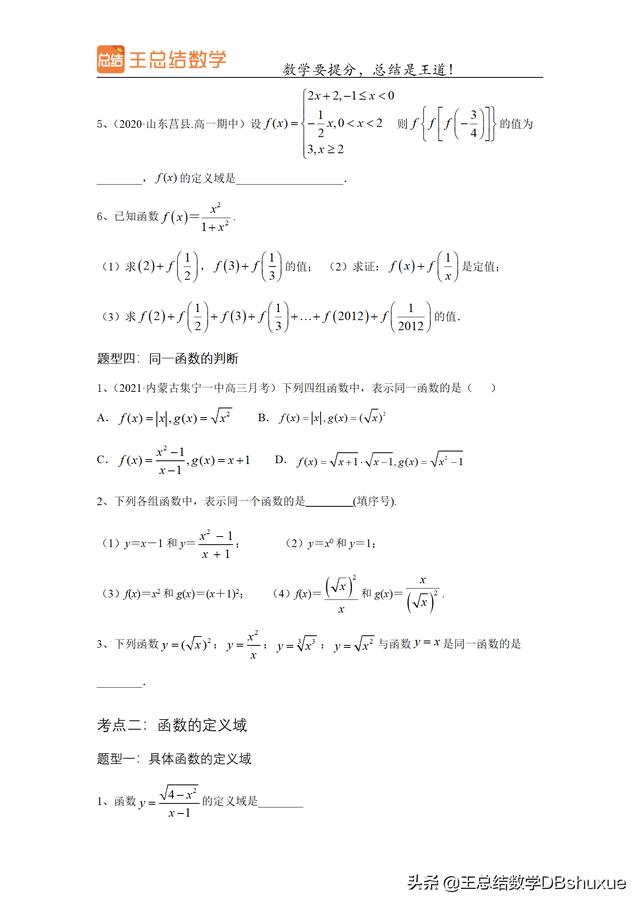 总结 王总结数学
数学要提分,总结是王道!
5、(2020·山东莒县.高一期中)设 f(x) = { 2x+2, −1 ≤ x < 0; −1/2 x, 0 < x < 2; 3, x ≥ 2 则 f{f[f(−3/4)]} 的值为
________,f(x) 的定义域是___________________.
6、已知函数 f(x) = x²/(1+x²).
(1)求(2)+f(1/2),f(3)+f(1/3)的值; (2)求证:f(x)+f(1/x)是定值;
(3)求 f(2)+f(1/2)+f(3)+f(1/3)+…+f(2012)+f(1/2012)的值.
题型四:同一函数的判断
1、(2021·内蒙古集宁一中高三月考)下列四组函数中,表示同一函数的是( )
A. f(x)=|x|,g(x)=√x² B. f(x)=|x|,g(x)=(√x)²
C. f(x)=(x²−1)/(x−1),g(x)=x+1 D. f(x)=√(x+1)·√(x−1),g(x)=√(x²−1)
2、下列各组函数中,表示同一个函数的是________(填序号).
(1)y=x-1 和 y=(x²−1)/(x+1); (2)y=x⁰ 和 y=1;
(3)f(x)=x² 和 g(x)=(x+1)²; (4)f(x)=(√x)²/x 和 g(x)=x/(√x)².
3、下列函数 y=(√x)²;y=x²/x;y=∛x³;y=√x² 与函数 y=x 是同一函数的是
________.
考点二:函数的定义域
题型一:具体函数的定义域
1、函数 y=√(4−x²)/(x−1) 的定义域是________
头条 @王总结数学DBshuxue